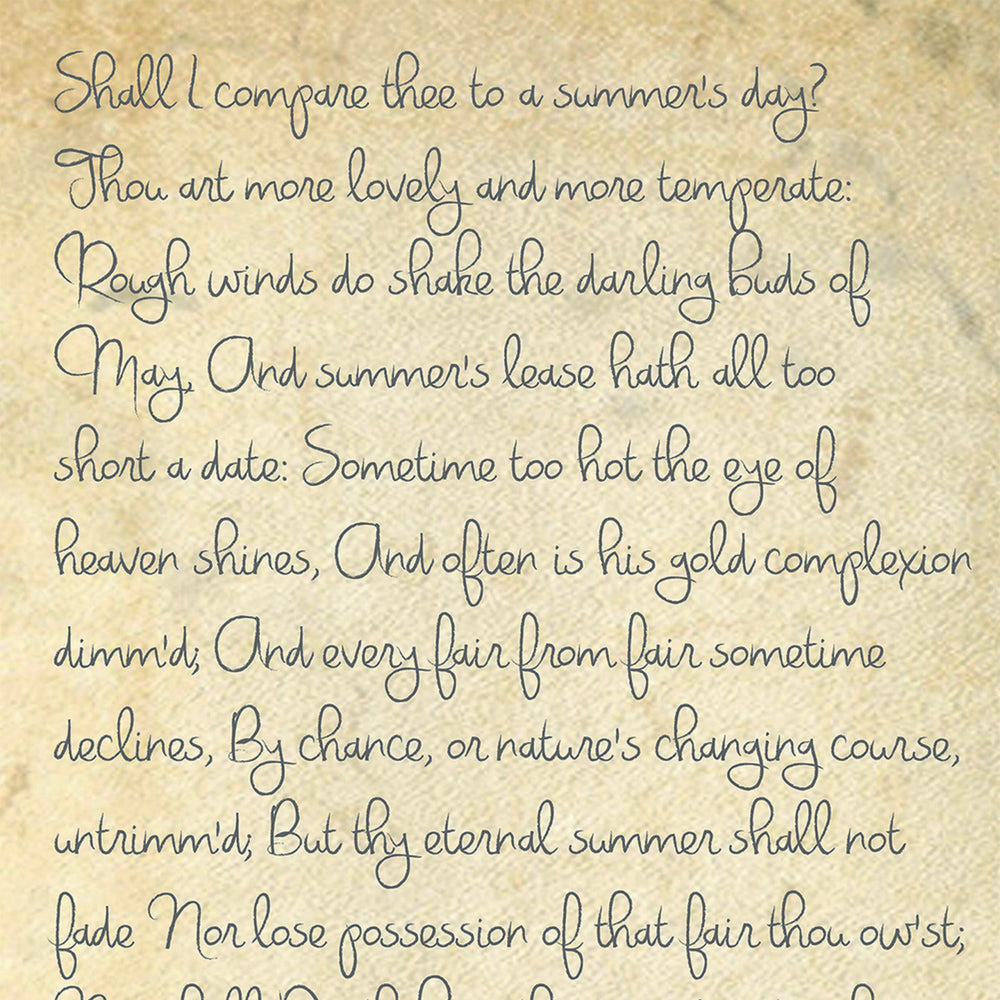 Shall I compare thee to a summer's day?
Thou art more lovely and more temperate:
Rough winds do shake the darling buds of
May, And summer's lease hath all too
short a date: Sometime too hot the eye of
heaven shines, And often is his gold complexion
dimm'd; And every fair from fair sometime
declines, By chance, or nature's changing course,
untrimm'd; But thy eternal summer shall not
fade Nor lose possession of that fair thou ow'st;